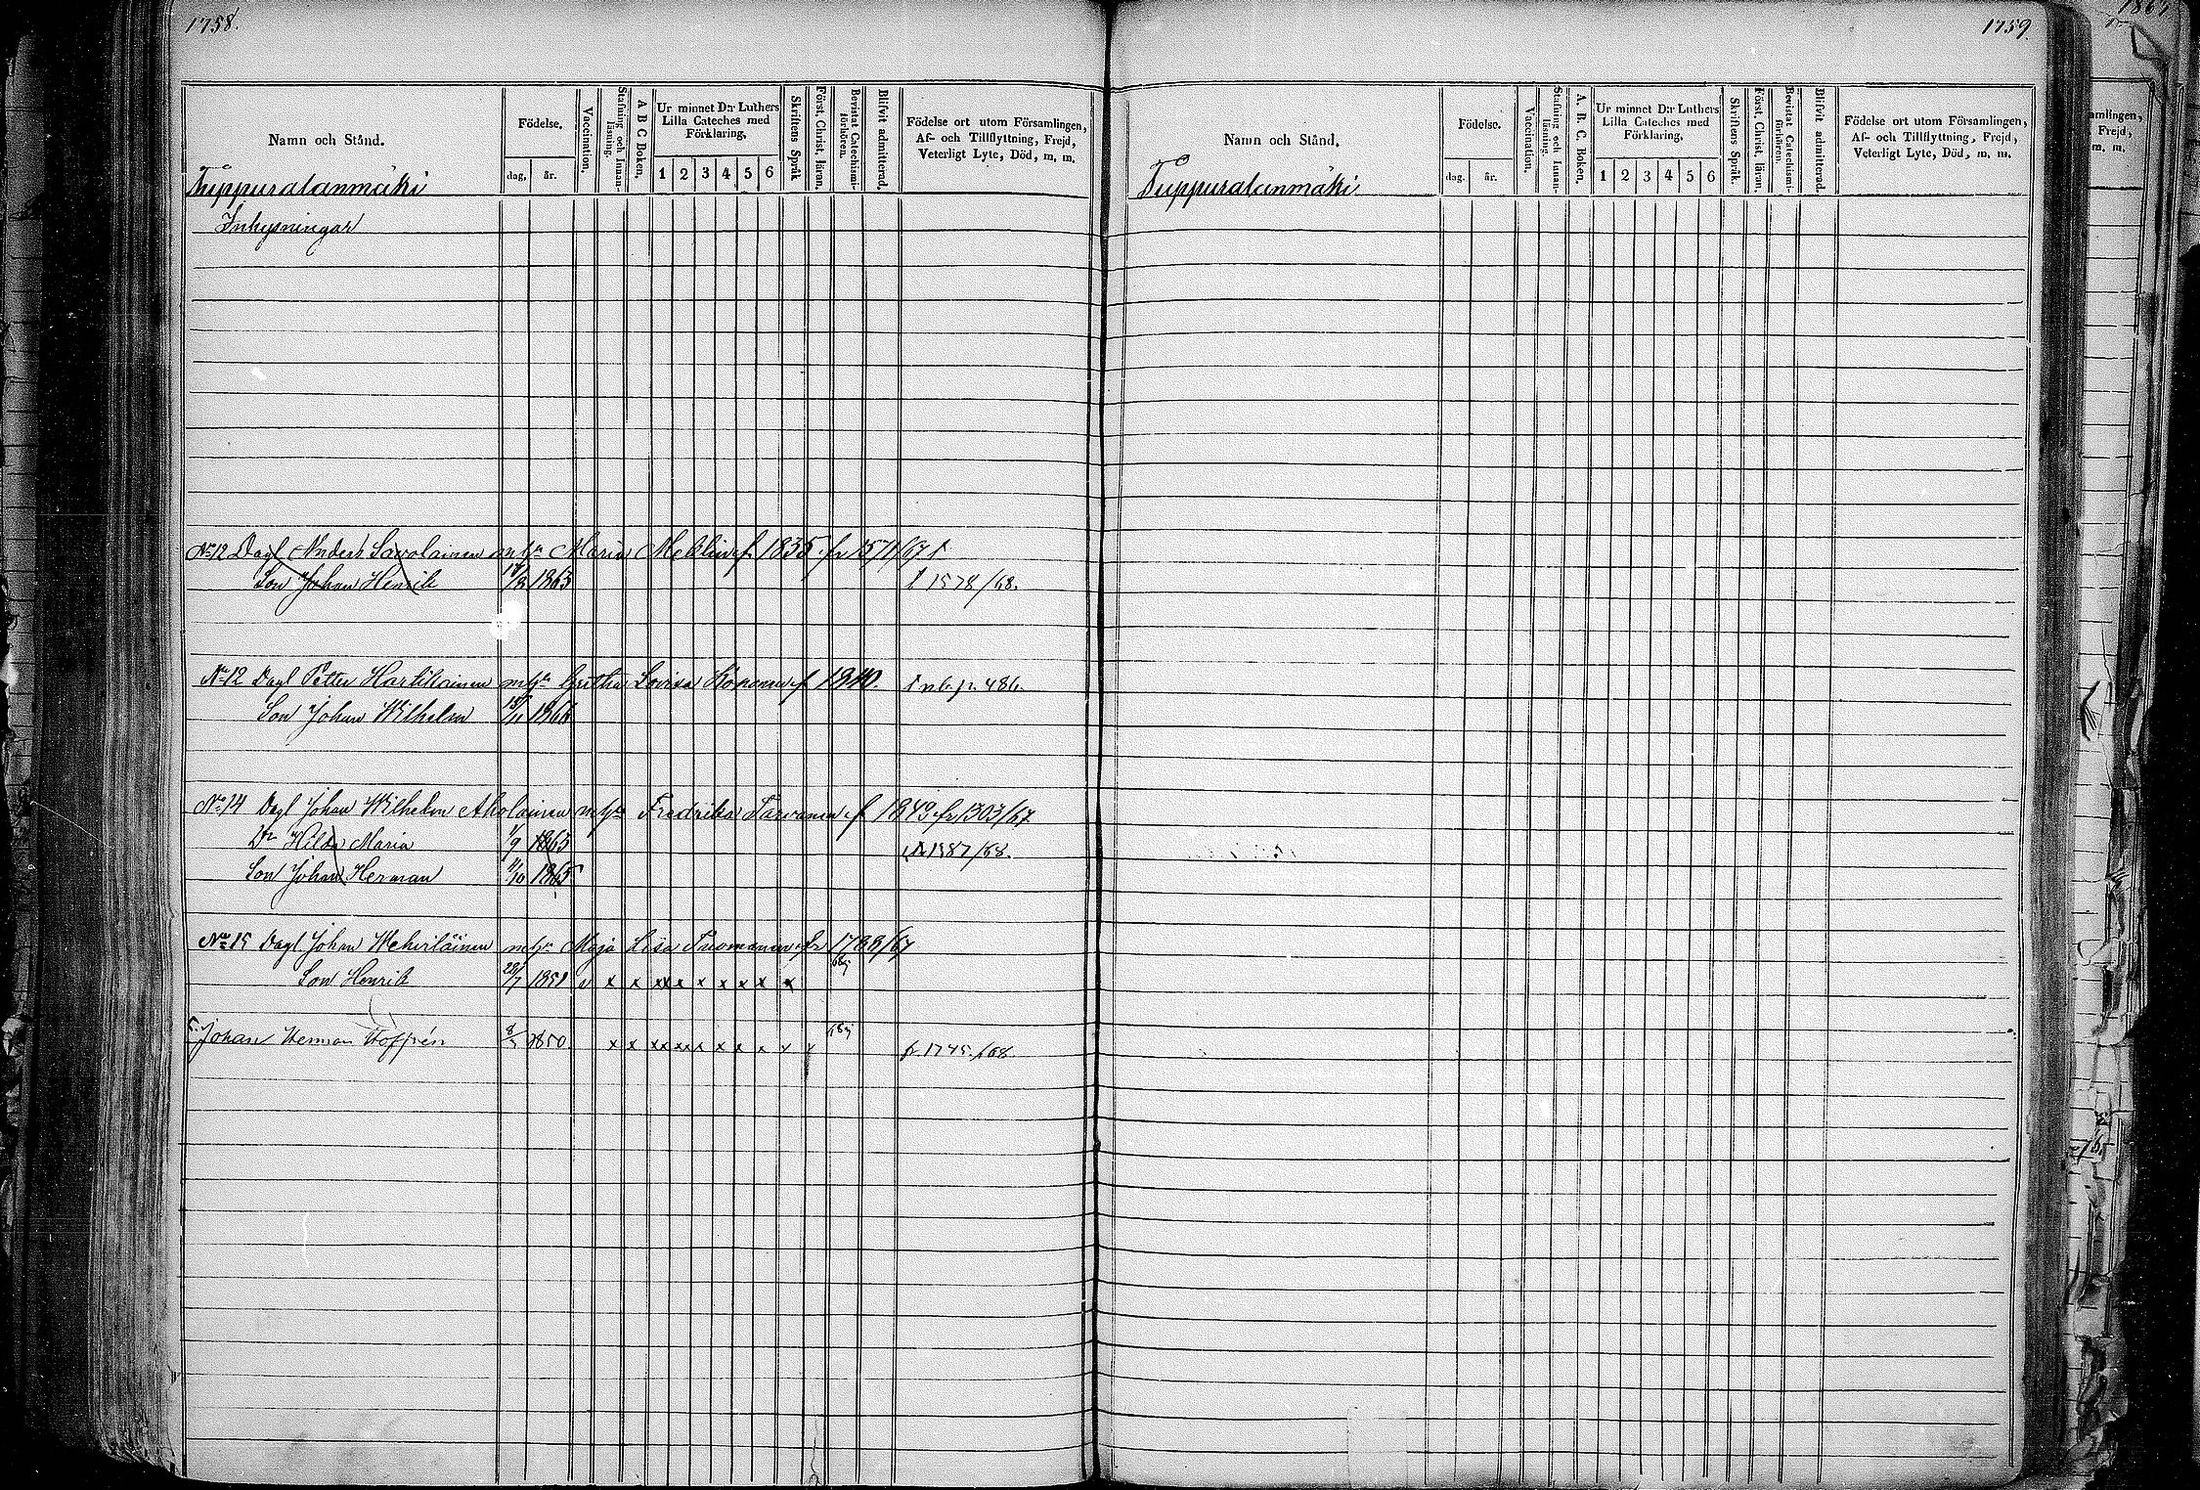 1758.
Namn och Stånd.
Födelse.
dag.
år.
Vaccination.
Stafning och Innanläsning.
A B C Boken.
Ur minnet D:r Luthers Lilla Cateches med Förklaring.
1 2 3 4 5 6
Skriftens Språk.
Först. Christ. läran.
Bevistat Catechismiförhören.
Blifvit admitterad.
Födelse ort utom Församlingen, Af- och Tillflyttning, Frejd, Veterligt Lyte, Död, m. m.
Tuppuralanmäki
Inhysningar
No 12 Dagl Anders Savolainen m hu Maria Meklin f 1835. fr 1571/67
Son Johan Henrik 1863 t 1578/68.
No 12 Dagl Petter Hartikainen m hu Gretha Lovisa Kononen f 1840. p. 486.
Son Johan Wilhelm 18/11 1866
No 14 Dagl Johan Wilhelm Aholainen m hu Fredrika Tarvanen f 1843 fr 1303/67
Dr Hilda Maria 1/9 1863 1987/68.
Son Johan Herman 11/10 1865
No 15 Dagl Johan Wehviläinen m hu Maja Lisa Tuomanen fr 1788/67
Son Henrik 28/7 1851 v x x xx x x x x x x 68
Johan Herman Hoffrén 1850 x x xx xx x x x x x x 68 fr. 1745./68.
1759.
Namn och Stånd.
Födelse.
dag.
år.
Vaccination.
Stafning och Innanläsning.
A. B. C. Boken.
Ur minnet D:r Luthers Lilla Cateches med Förklaring.
1 2 3 4 5 6
Skriftens Språk.
Först. Christ. läran.
Bevistat Catechismiförhören.
Blifvit admitterad.
Födelse ort utom Församlingen, Af- och Tillflyttning, Frejd, Veterligt Lyte, Död, m. m.
Tuppuralanmäki
amlingen,
Frejd,
m. m.